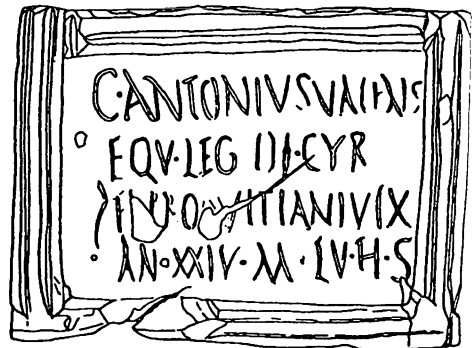 C·ANTONIVSVALENS
EQV·LEG III·CYR
ITIANIVIX
AN·XXIV·M·LV·H·S